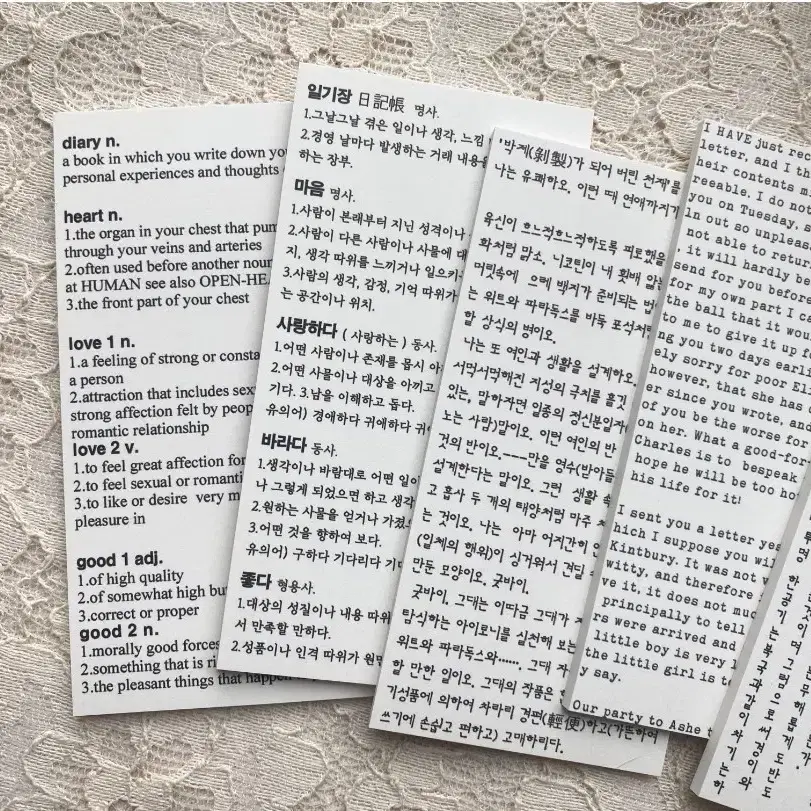 diary n.
a book in which you write down
personal experiences and thoughts
heart n.
1.the organ in your chest that
through your veins and arteries
2.often used before another
at HUMAN see also
3.the front part of your chest
love 1 n.
1.a feeling of strong or
a person
2.attraction that includes
strong affection felt by
romantic relationship
love 2 v.
1.to feel great affection for
2.to feel sexual or
3.to like or desire very
pleasure in
good 1 adj.
1.of high quality
2.of somewhat high but
3.correct or proper
good 2 n.
1.morally good forces
2.something that is
3.the pleasant things that
일기장 日記帳 명사.
1.그날그날 겪은 일이나 생각, 느낌
2.경영 날마다 발생하는 거래 내용을
하는 장부.
마음 명사.
1.사람이 본래부터 지닌 성격이나
2.사람이 다른 사람이나 사물에
지, 생각 따위를 느끼거나
3.사람의 생각, 감정, 기억 따위가
는 공간이나 위치.
사랑하다 (사랑하는) 동사.
1.어떤 사람이나 존재를 몹시
2.어떤 사물이나 대상을 아끼고
기다. 3.남을 이해하고 돕다.
유의어) 경애하다 귀애하다
바라다 동사.
1.생각이나 바람대로 어떤
나 그렇게 되었으면 하고
2.원하는 사물을 얻거나
3.어떤 것을 향하여 보다.
유의어) 구하다 기다리다
좋다 형용사.
1.대상의 성질이나 내용 따위
서 만족할 만하다.
2.성품이나 인격 따위가
'박제(剝製)가 되어 버린 천재'를
나는 유쾌하오. 이런 때 연애까지가
육신이 흐느적흐느적하도록 피로했을
화처럼 맑소. 니코틴이 내 횟배
머릿속에 으레 백지가 준비되는
는 위트와 파라독스를 바둑 포석처럼
할 상식의 병이오.
나는 또 여인과 생활을 설계하오.
서먹서먹해진 지성의 극치를 흘깃
있는, 말하자면 일종의 정신분일자
노는 사람)말이오. 이런 여인의 반
것의 반이오.----만을 영수(받아들
설계한다는 말이오. 그런 생활
고 흡사 두 개의 태양처럼 마주
는 것이오. 나는 아마 어지간히
(일체의 행위)이 싱거워서 견딜
만둔 모양이오. 굿바이.
굿바이. 그대는 이따금 그대가
탐식하는 아이로니를 실천해
위트와 파라독스와......, 그대
할 만한 일이오. 그대의 작품은
기성품에 의하여 차라리 경편(輕便)하고(가든하여
쓰기에 손쉽고 편하고) 고매하리다.
I HAVE just
letter, and I
heir contents
reeable. I do not
you on Tuesday,
ln out so
not able to
, it will hardly be
send for you before
for my own part I
the ball that it
to me to give it up
ng you two days
ely sorry for poor
however, that she has
er since you wrote, and
of you be the worse for
on her. What a
Charles is to bespeak
hope he will be too
his life for it!
I sent you a letter
hich I suppose you
Kintbury. It was not
witty, and therefore
ve it, it does not
principally to tell
rs were arrived and
little boy is very
the little girl is
y say.
Our party to Ashe